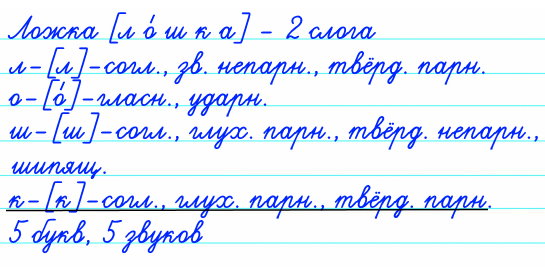 Ложка [л о́ ш к а] - 2 слога
л-[л]-согл., зв. непарн., твёрд. парн.
о-[о́]-гласн., ударн.
ш-[ш]-согл., глух. парн., твёрд. непарн.,
шипящ.
к-[к]-согл., глух. парн., твёрд. парн.
5 букв, 5 звуков